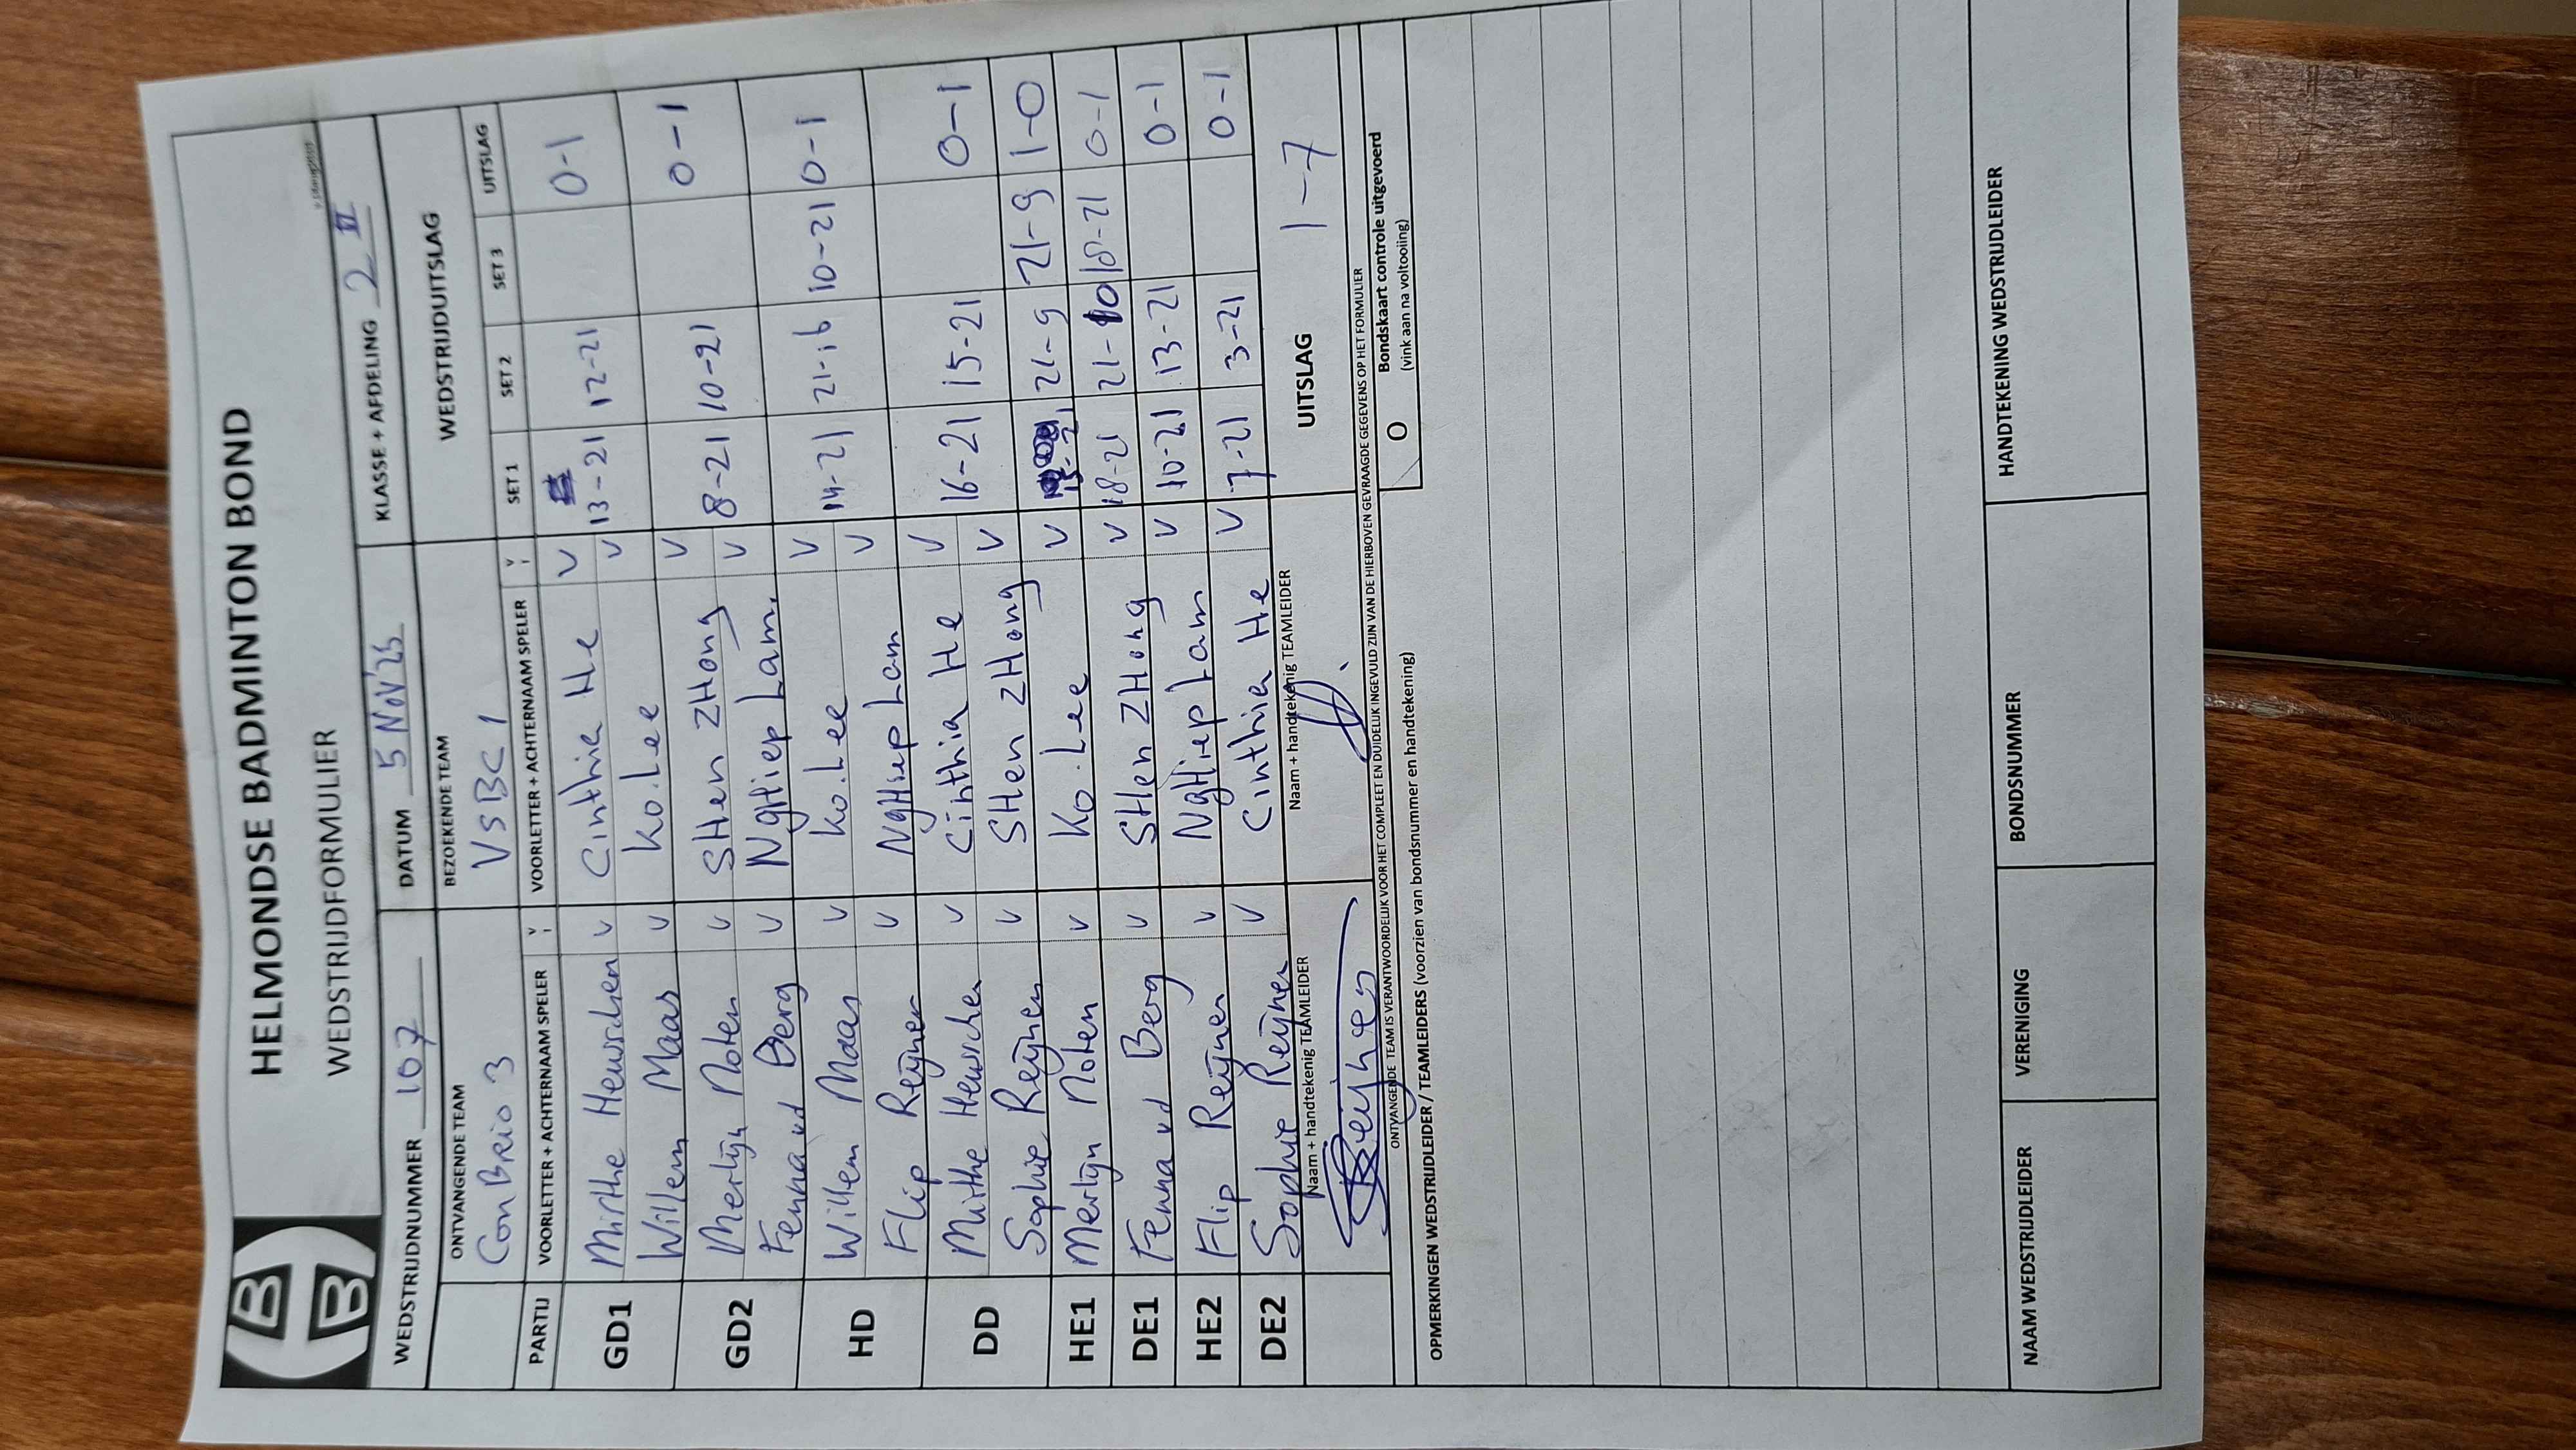 HELMONDSE BADMINTON BOND
WEDSTRIJDFORMULIER
WEDSTRIJDNUMMER 107 DATUM 5 Nov'25 KLASSE + AFDELING 2 II
ONTVANGENDE TEAM BEZOEKENDE TEAM WEDSTRIJDUITSLAG
Con Brio 3 VSBC 1
PARTIJ VOORLETTER + ACHTERNAAM SPELER V VOORLETTER + ACHTERNAAM SPELER V SET 1 SET 2 SET 3 UITSLAG
GD1 Mirthe Hewschen v Cinthia He v 13-21 12-21 0-1
Willem Maas v Ko.Lee v
GD2 Merlijn Noten v SHen ZHong v 8-21 10-21 0-1
Fenna vd Berg v NgHiep Lam. v
HD Willem Maas v Ko.Lee v 14-21 21-16 10-21 0-1
Flip Reijnen v NgHiep Lam v
DD Mirthe Hewschen v Cinthia He v 16-21 15-21 0-1
Sophie Reijnen v SHen ZHong v
HE1 Merlijn Noten v Ko.Lee v 15-21 21-9 21-9 1-0
DE1 Fenna vd Berg v SHen ZHong v 18-21 21-10 18-21 0-1
HE2 Flip Reijnen v NgHiep Lam v 10-21 13-21 0-1
DE2 Sophie Reijnen v Cinthia He v 7-21 3-21 0-1
Naam + handtekenig TEAMLEIDER Naam + handtekenig TEAMLEIDER UITSLAG 1-7
Reijnen
ONTVANGENDE TEAM IS VERANTWOORDELIJK VOOR HET COMPLEET EN DUIDELIJK INGEVULD ZIJN VAN DE HIERBOVEN GEVRAAGDE GEGEVENS OP HET FORMULIER
O Bondskaart controle uitgevoerd
(vink aan na voltooiing)
OPMERKINGEN WEDSTRIJDLEIDER / TEAMLEIDERS (voorzien van bondsnummer en handtekening)
NAAM WEDSTRIJDLEIDER VERENIGING BONDSNUMMER HANDTEKENING WEDSTRIJDLEIDER